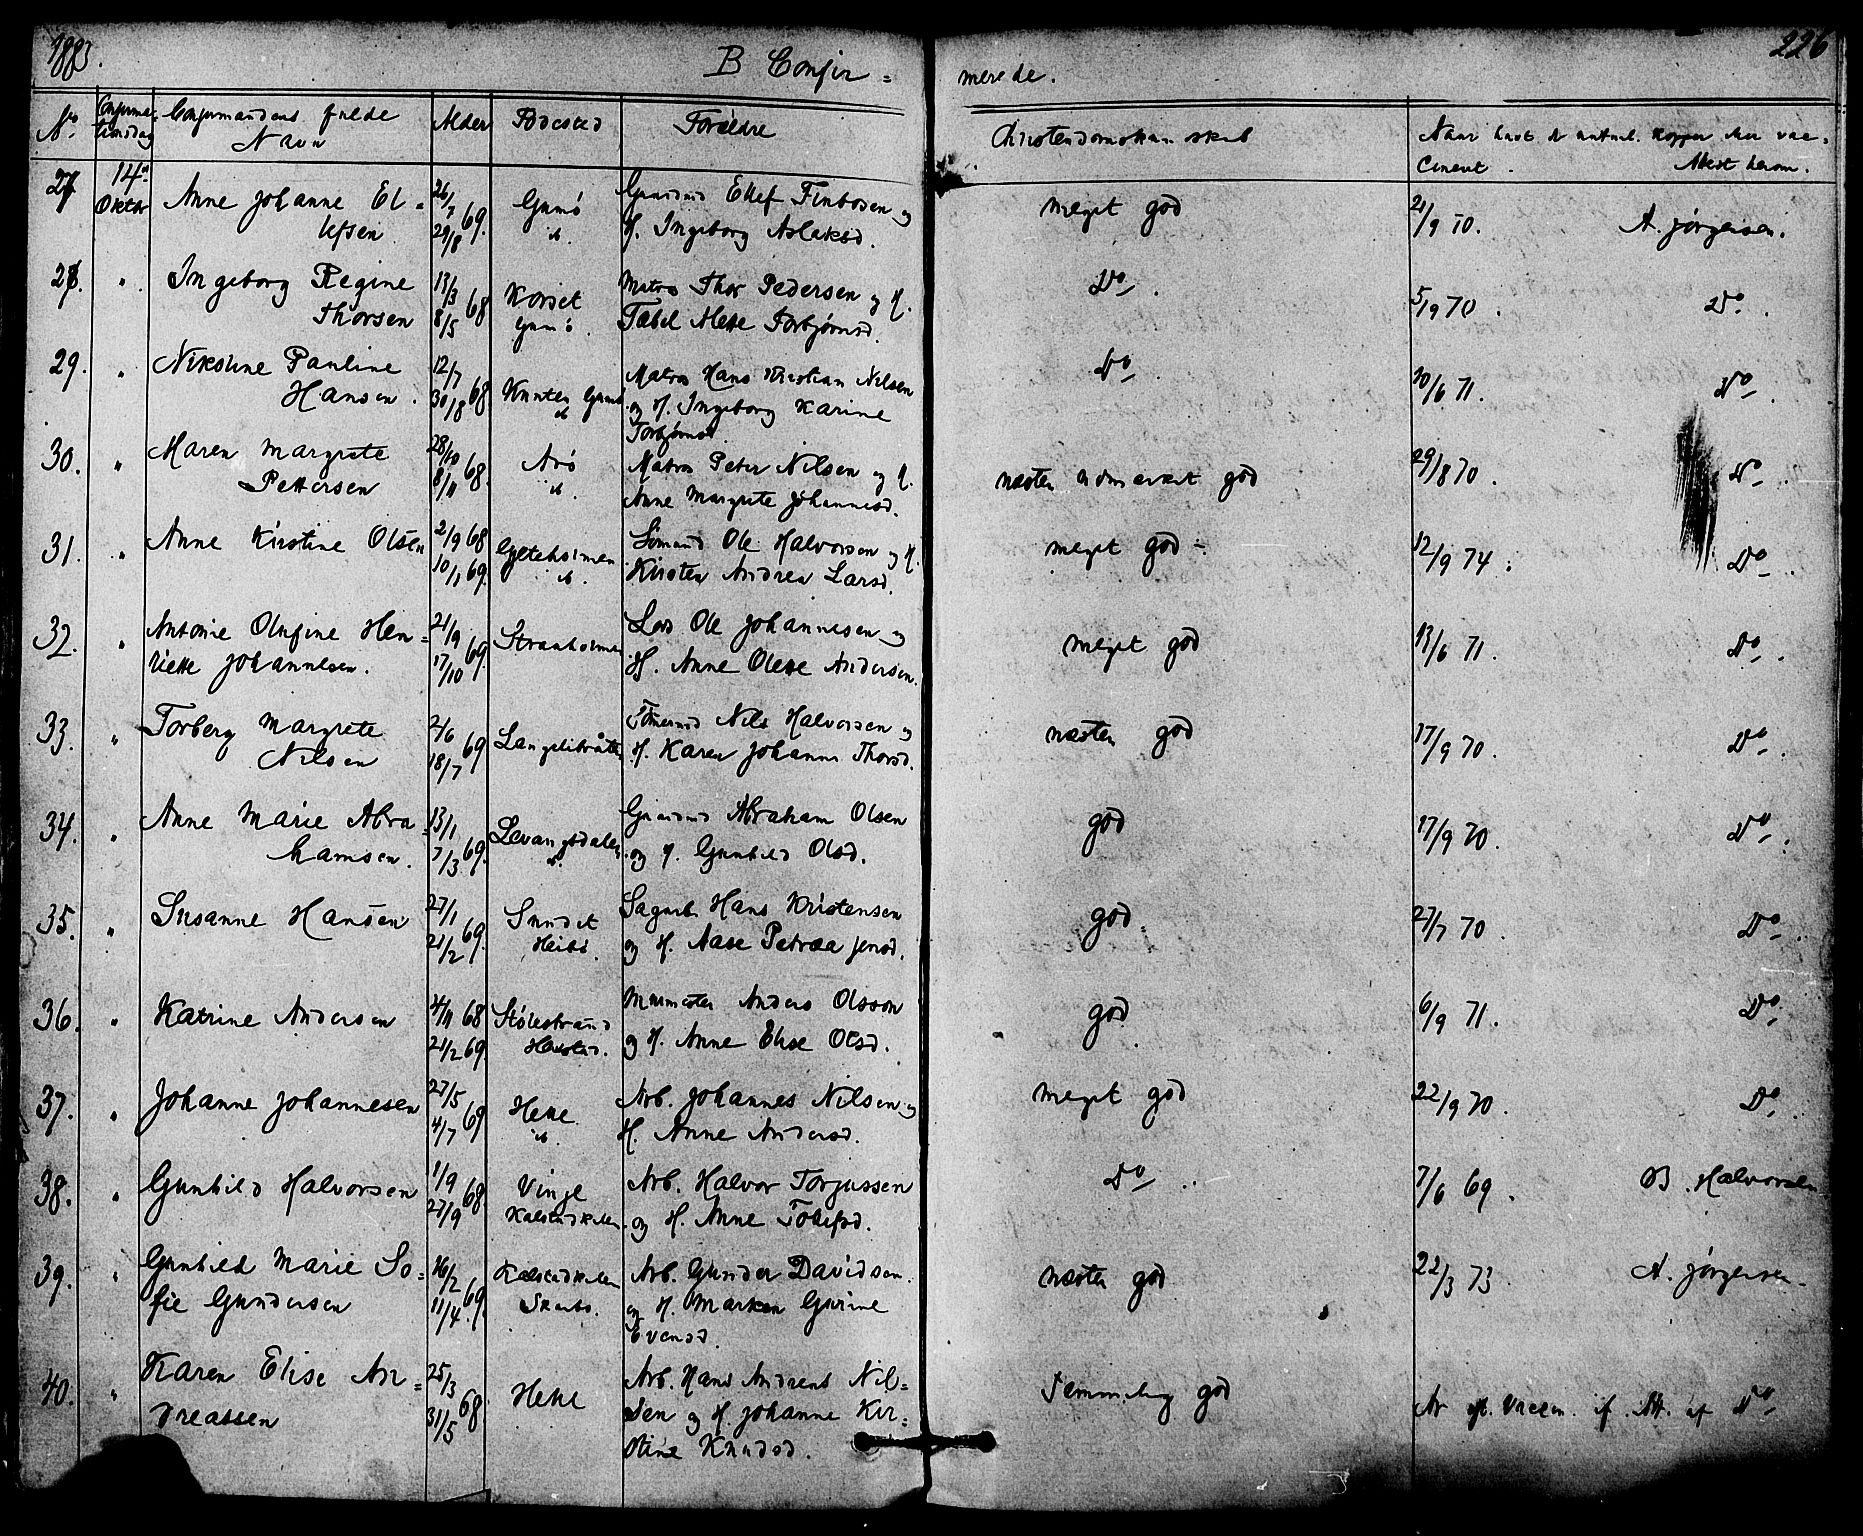 1883.
B Confir =
merede.
226
No.
Confirma-
tionsdag
Confirmandens fulde
Navn
Alder
Fødested
Forældre
Christendomskundskab
Naar havt de naturl. Kopper eller vac-
cineret.
Attest herom.
27 14de Oktbr Anne Johanne El-
lefsen 26/7 69. 29/8 Gumø ib.
Gaardmd Ellef Finbosen og
H. Ingeborg Aslaksd.
meget god 21/9 70. A. Jørgensen.
28. " Ingeborg Regine
Thorsen 13/3 68 8/5 Korset Gumø.
Matros Thor Pedersen og H.
Tabel Mette Torbjørnsd.
Do 5/9 70. Do.
29. " Nikoline Pauline
Hansen. 12/7 68 30/8 Knuten Gumø ib
Matros Hans Kristian Nilsen
og H. Ingeborg Karine
Torbjørnsd.
Do 30/6 71. Do.
30. " Maren Margrete
Pettersen 28/10 68. 8/11 Arø ib.
Matros Peter Nilsen og H.
Anne Margrete Johannesd.
næsten udmærket god 29/8 70. Do.
31. " Anne Kirstine Olsen 2/9 68 10/1 69. Gjeteholmen ib.
Sømand Ole Halvorsen og H.
Kirsten Andrea Larsd.
meget god - 12/9 74. Do.
32. " Antonie Olufine Hen-
riette Johannesen. 21/9 69. 17/10 Straaholmen
Lods Ole Johannesen og
H. Anne Olette Andersen.
meget god 13/6 71. Do.
33. " Torberg Margrete
Nilsen 2/6 69 18/7 Langelibråtte
Tømermd Nils Halvorsen og
H. Karen Johanne Thorsd.
næsten god 17/9 70. Do.
34. " Anne Marie Abra-
hamsen. 13/1 69. 7/3 Levangsdalen ib.
Gaardmd Abraham Olsen
og H. Gunhild Olsd.
god 17/9 70. Do.
35. " Susanne Hansen 27/1 69. 21/2 Sundet Heibø.
Sagarb. Hans Kristensen
og H. Aase Petræa Jensd.
god. 27/7 70. Do.
36. " Katrine Andersen 4/11 68 21/2 69. Stølestrand
Murmester Anders Olsson
og H. Anne Elise Olsd.
god 6/9 71. Do.
37. " Johanne Johannesen 27/5 69 4/7 Helle ib.
Arb. Johannes Nilsen og
H. Anne Andersd.
meget god 22/9 70. Do.
38. " Gunhild Halvorsen 1/9 68. 27/9 Vinje Kalstadkilen
Arb. Halvor Torjussen
og H. Anne Tollefsd.
Do 7/6 69. B. Halvorsen
39. " Gunhild Marie So-
fie Gundersen 16/2 69. 11/4 Kalstadkilen Skaabø.
Arb. Gunder Davidsen.
og H. Marken Gurine
Evensd.
næsten god 22/3 73 A. Jørgensen
40. " Karen Elise An-
dreassen 25/3 68 31/5 Helle
Arb. Hans Andreas Nil-
sen og H. Johanne Kir-
stine Knudsd.
Temmelig god Er vaccin. if. Att. af Do